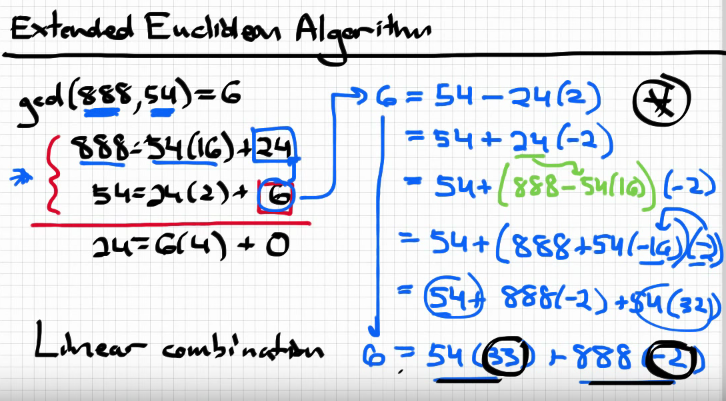 Extended Euclidean Algorithm
gcd(888,54)=6
888=54(16)+24
54=24(2)+6
24=6(4)+0
Linear combination
6 = 54-24(2)
= 54+24(-2)
= 54+(888-54(16))(-2)
= 54+(888+54(-16))(-2)
= 54+ 888(-2)+54(32)
6 = 54(33)+888(-2)
*